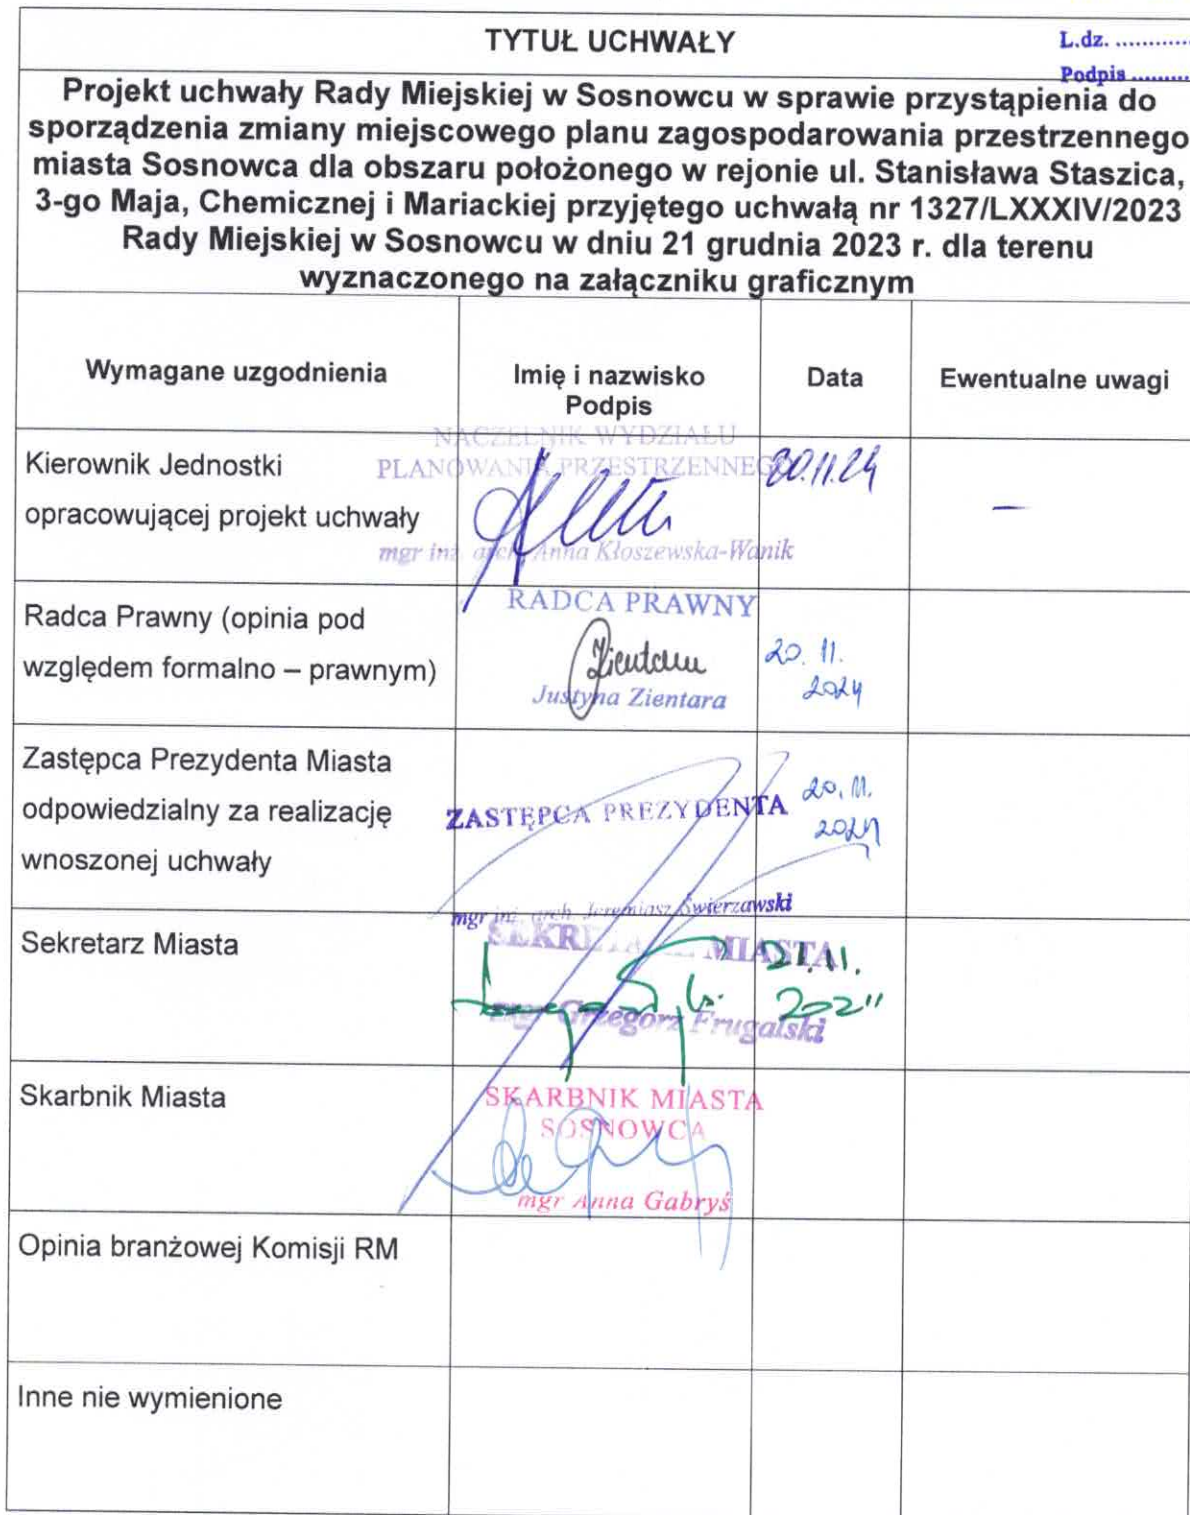 TYTUŁ UCHWAŁY
L.dz. ............
Podpis .........
Projekt uchwały Rady Miejskiej w Sosnowcu w sprawie przystąpienia do
sporządzenia zmiany miejscowego planu zagospodarowania przestrzennego
miasta Sosnowca dla obszaru położonego w rejonie ul. Stanisława Staszica,
3-go Maja, Chemicznej i Mariackiej przyjętego uchwałą nr 1327/LXXXIV/2023
Rady Miejskiej w Sosnowcu w dniu 21 grudnia 2023 r. dla terenu
wyznaczonego na załączniku graficznym
Wymagane uzgodnienia
Imię i nazwisko
Podpis
Data
Ewentualne uwagi
Kierownik Jednostki
opracowującej projekt uchwały
NACZELNIK WYDZIAŁU
PLANOWANIA PRZESTRZENNEGO
mgr inż. arch. Anna Kłoszewska-Wanik
20.11.24
–
Radca Prawny (opinia pod
względem formalno – prawnym)
RADCA PRAWNY
Zientara
Justyna Zientara
20. 11.
2024
Zastępca Prezydenta Miasta
odpowiedzialny za realizację
wnoszonej uchwały
ZASTĘPCA PREZYDENTA
mgr inż. arch. Jeremiasz Świerzawski
20. 11.
2024
Sekretarz Miasta
SEKRETARZ MIASTA
mgr Grzegorz Frugalski
21.11.
Skarbnik Miasta
SKARBNIK MIASTA
SOSNOWCA
mgr Anna Gabryś
Opinia branżowej Komisji RM
Inne nie wymienione